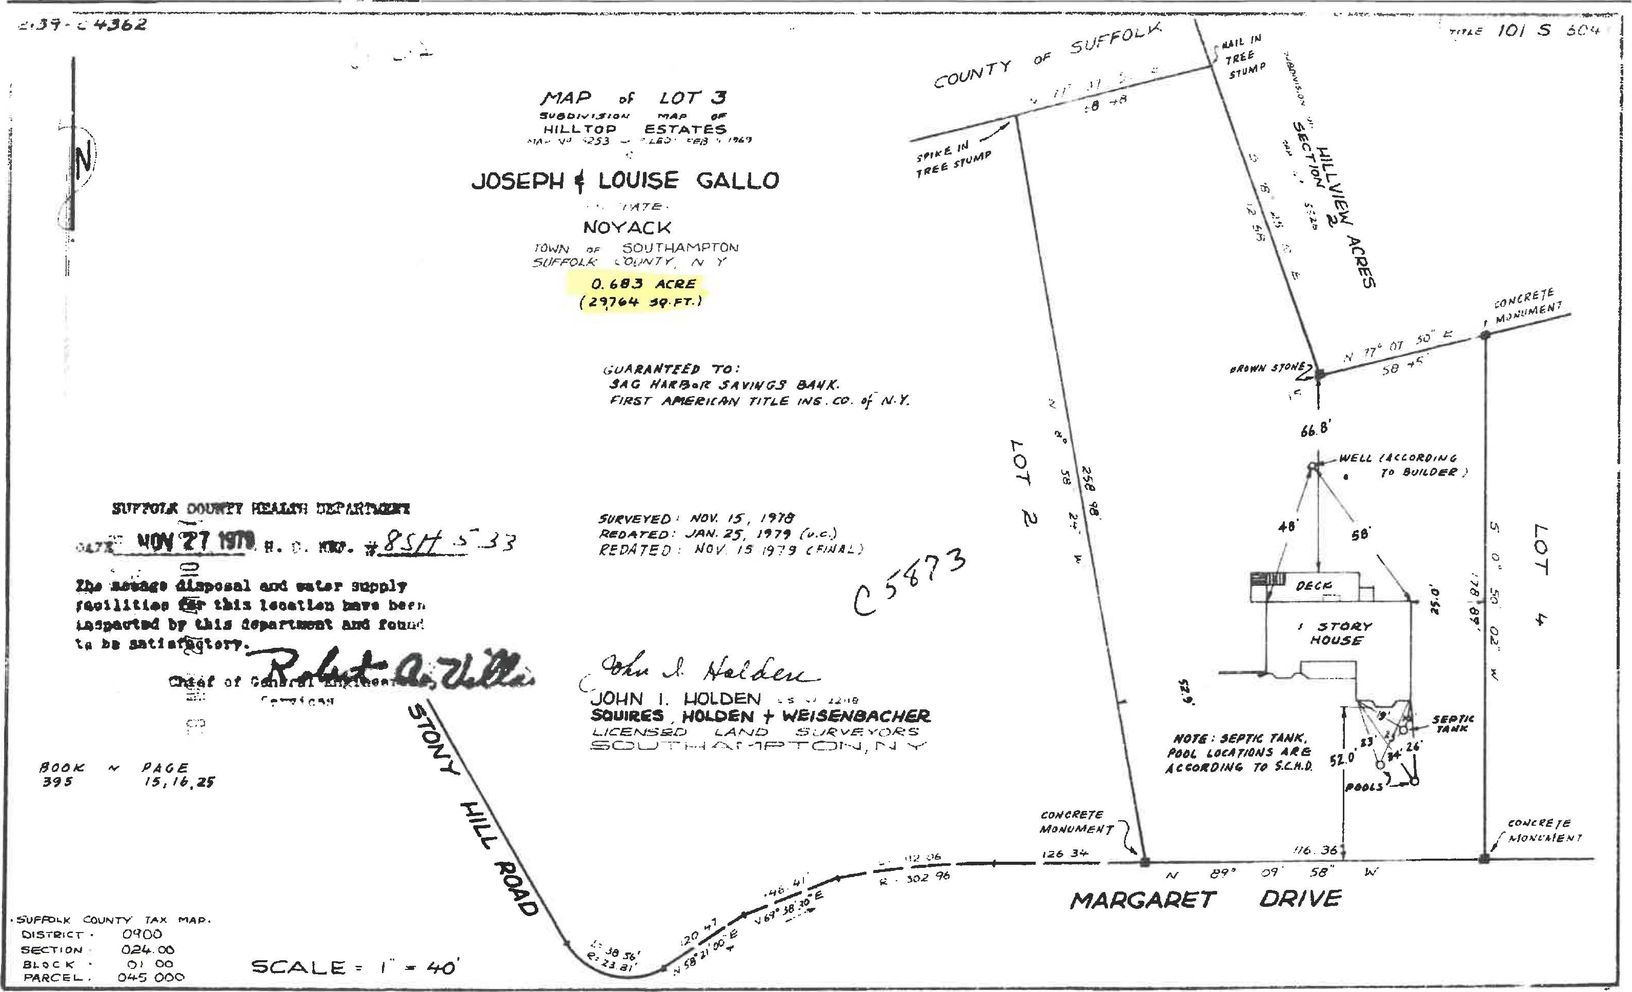 C 4362
TITLE 101 S 604
N
MAP of LOT 3
SUBDIVISION MAP OF
HILLTOP ESTATES
1969
JOSEPH & LOUISE GALLO
NOYACK
TOWN OF SOUTHAMPTON
SUFFOLK COUNTY, N Y
0.683 ACRE
(29,764 SQ.FT.)
GUARANTEED TO:
SAG HARBOR SAVINGS BANK.
FIRST AMERICAN TITLE INS. CO. of N.Y.
SURVEYED: NOV. 15, 1978
REDATED: JAN. 25, 1979 (U.C.)
REDATED: NOV. 15 1979 (FINAL)
C 5873
John I. Holden
JOHN I. HOLDEN
SQUIRES, HOLDEN + WEISENBACHER
LICENSED LAND SURVEYORS
SOUTHAMPTON, N Y
SUFFOLK COUNTY HEALTH DEPARTMENT
DATE NOV 27 1979 H. D. REF. #8SH 5 33
The sewage disposal and water supply
facilities for this location have been
inspected by this department and found
to be satisfactory.
Robert A. Villa
Chief of General Engineering
Services
BOOK ~ PAGE
395 15,16,25
SUFFOLK COUNTY TAX MAP.
DISTRICT. 0900
SECTION 024.00
BLOCK 01 00
PARCEL. 045 000
SCALE = 1" = 40'
STONY HILL ROAD
L: 38 56'
R: 23.81'
120 47
N 58° 21' 00" E
146.41'
N 69° 38' 20" E
112.06
R - 302 96
126 34
COUNTY OF SUFFOLK
NAIL IN
TREE
STUMP
SPIKE IN
TREE STUMP
SUBDIVISION
HILLVIEW ACRES
SECTION 2
CONCRETE
MONUMENT
N 77° 07 50" E
58 45'
BROWN STONE
66.8'
WELL (ACCORDING
TO BUILDER)
48'
58'
LOT 2
258 98'
58 24" W
DECK
1 STORY
HOUSE
25.0'
178.89'
S 0° 50' 02" W
LOT 4
52.9'
NOTE: SEPTIC TANK,
POOL LOCATIONS ARE
ACCORDING TO S.C.H.D.
52.0'
19'
23'
34'
26'
SEPTIC
TANK
POOLS
CONCRETE
MONUMENT
CONCRETE
MONUMENT
116.36
N 89° 09' 58" W
MARGARET DRIVE